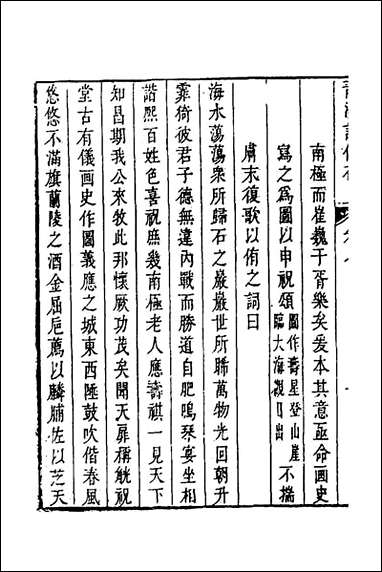 南極而崔巍于胥樂矣爰本其意亟命画史
寫之爲圖以申祝頌圖作壽星登山崖臨大海觀日出不揣
膚末復歌以侑之詞曰
海水蕩蕩衆所歸石之巖巖世所睎萬物光回朝升
霏猗彼君子德無違內戰而勝道自肥鳴琴宴坐相
諧熙百姓色喜祝庶幾南極老人應壽祺一見天下
知昌期我公來敉此那懷厥功茂矣聞天扉稱觥祝
堂古有儀画史作圖義應之城東西陲鼓吹偕春風
悠悠不滿旗蘭陵之酒金屈卮薦以麟脯佐以芝天